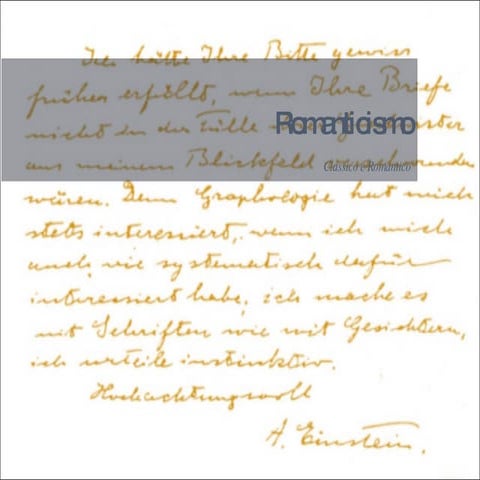 Ich hätte Ihre Bitte gewiss
früher erfüllt, wenn Ihre Briefe
nicht in der Fülle
Romanticismo
aus meinem Blickfeld verschwunden
Clássico e Romântico
wären. Denn Graphologie hat mich
stets interessiert, wenn ich mich
auch nie systematisch dafür
interessiert habe, ich mache es
mit Schriften wie mit Gesichtern,
ich urteile instinktiv.
Hochachtungsvoll
A. Einstein.